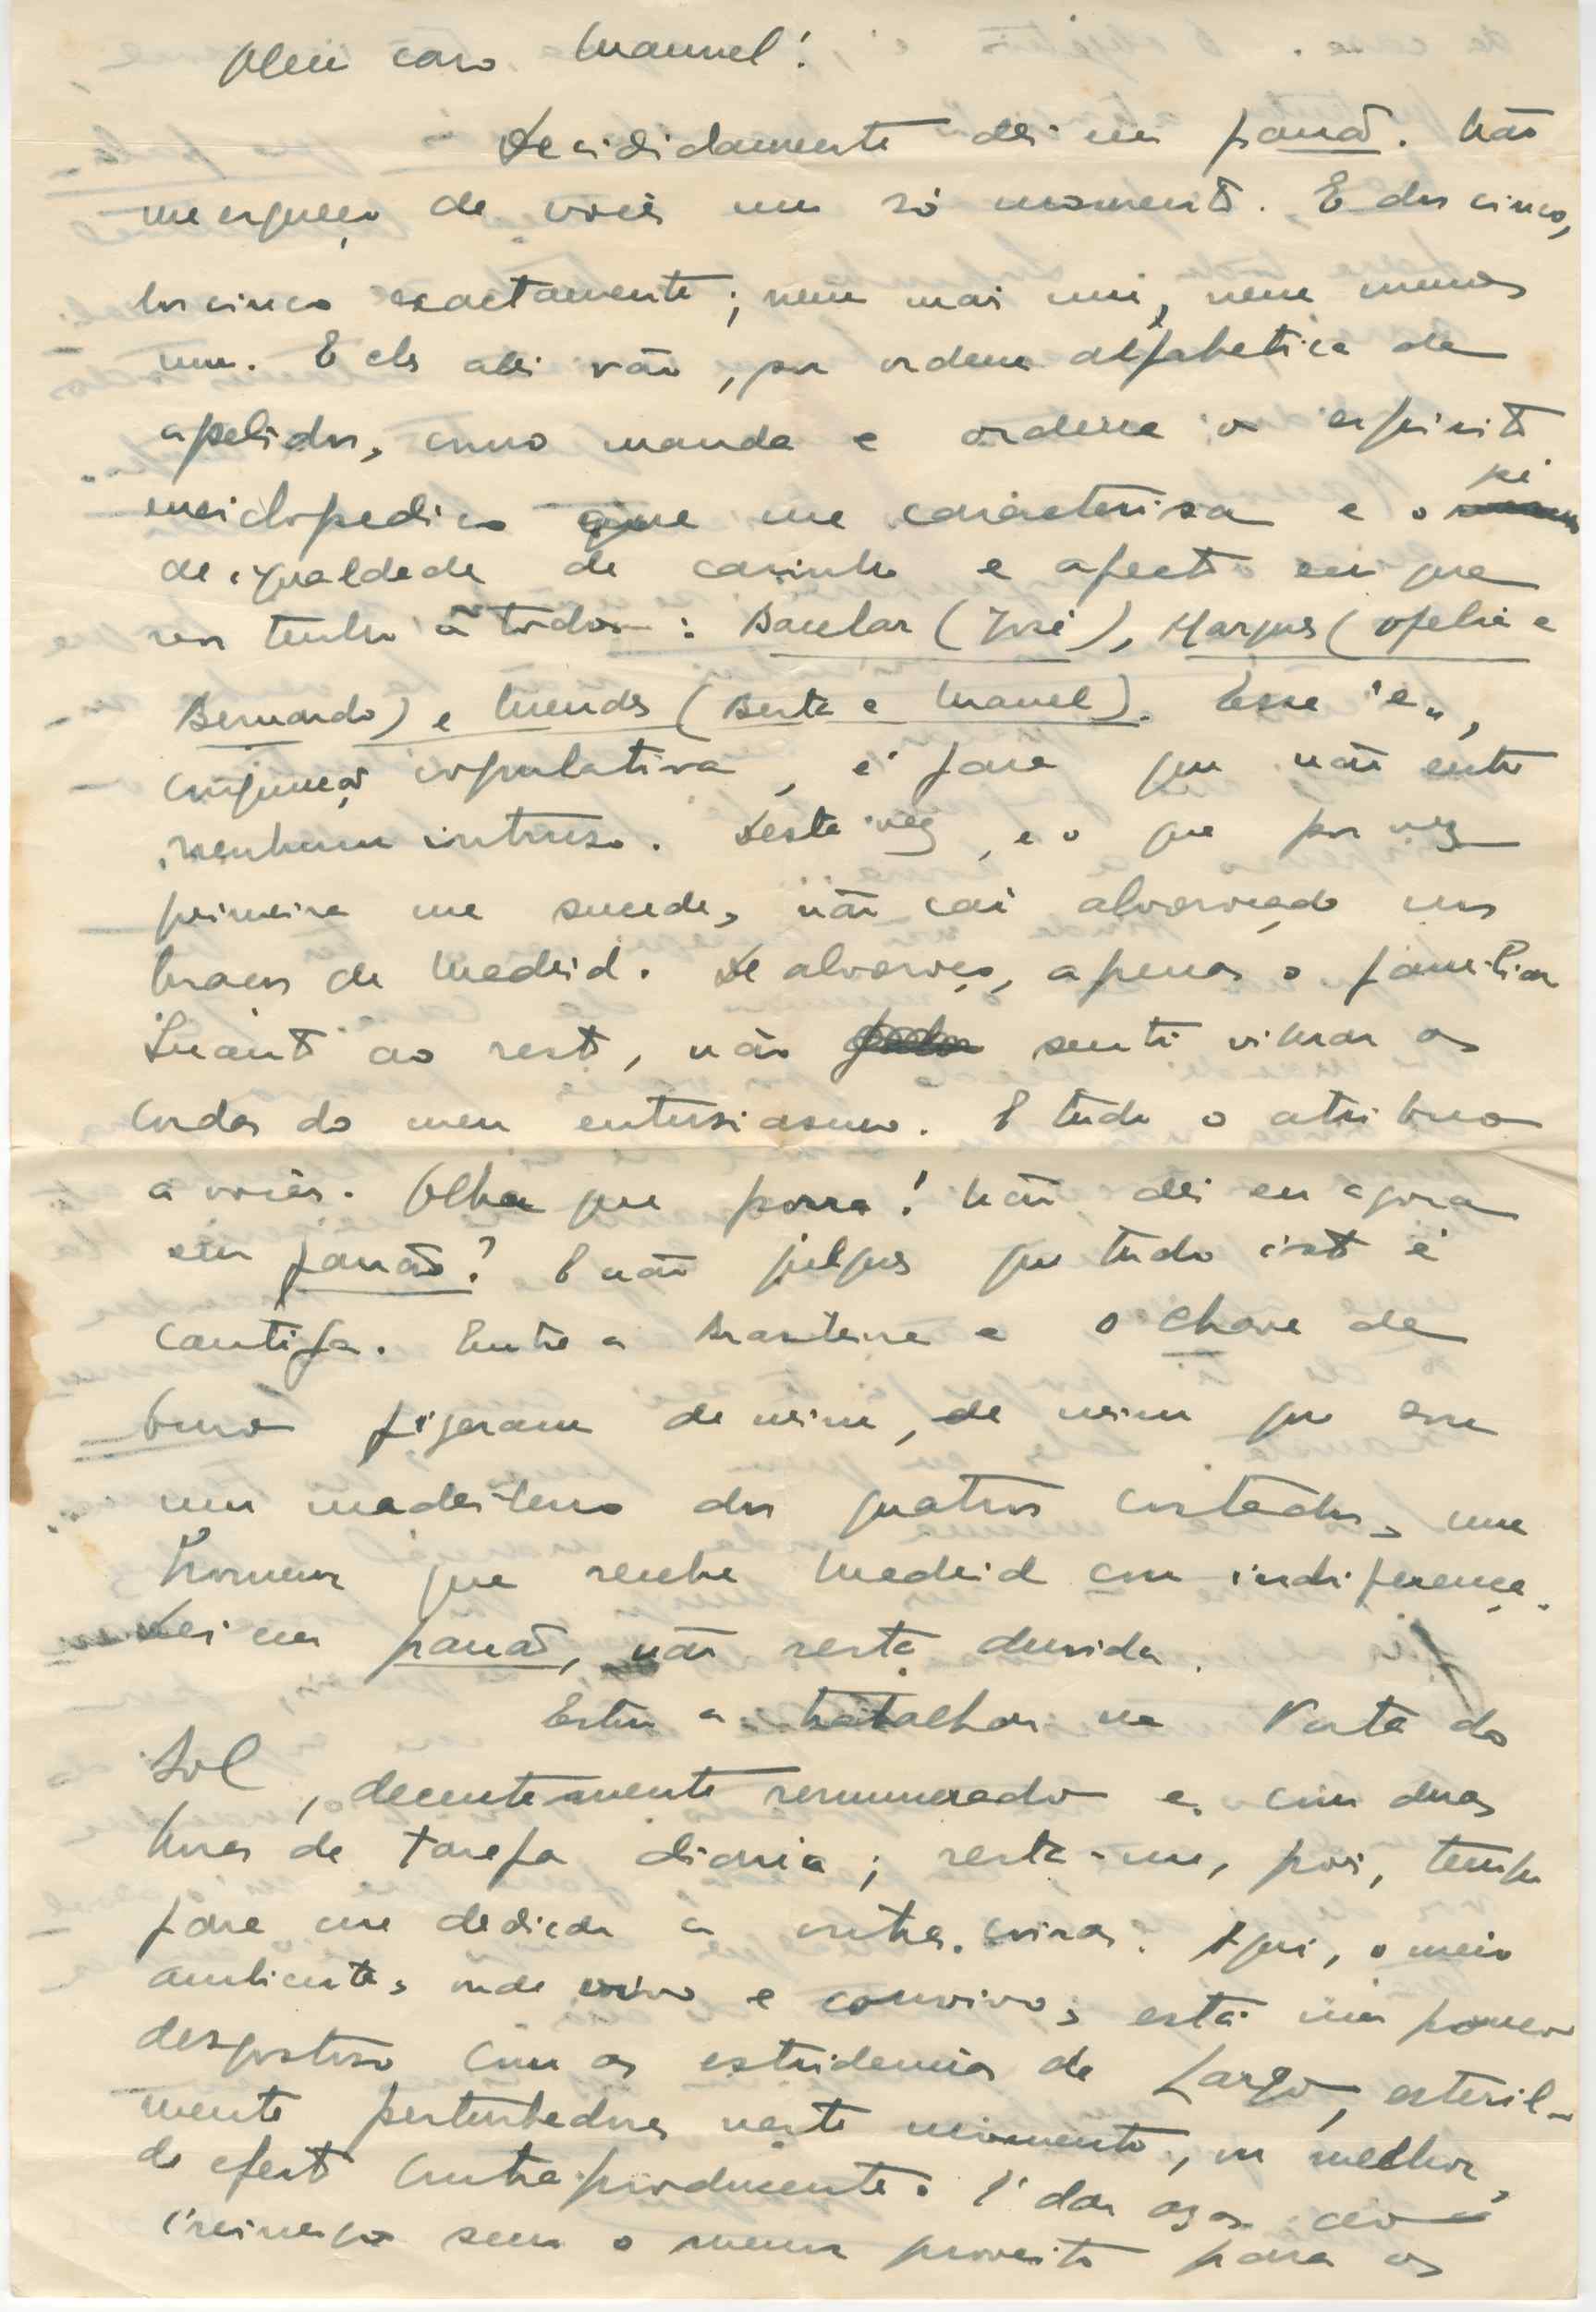 Meu caro Manuel:
Decididamente dei em panão. Não
me esqueço de vocês um só momento. E dos cinco,
dos cinco exactamente; nem mais um, nem menos
um. E eles ahi vão, por ordem alfabetica de
apelidos, como manda e ordena o espirito
enciclopedico que me caracterisa e o pé
de igualdade de carinho e afecto em que
vos tenho a todos: Bacelar (José), Marques (Ofelia e
Bernardo) e Mendes (Berta e Manuel). Esse "e",
conjunção copulativa, é para que não entre
nenhum intruso. Desta vez, e o que por vez
primeira me sucede, não cai alvoroçado nos
braços de Madrid. De alvoroço, apenas o familiar
Quanto ao resto, não senti vibrar as
cordas do meu entusiasmo. E tudo o atribuo
a vocês. Olha que porra! Não dei eu agora
em panão? E não julgues que tudo isto é
cantiga. Entre a Brasileira e o Chave de
Ouro fizeram de mim, de mim que sou
um madrileno dos quatros costados, um
homem que recebe Madrid com indiferença.
Dei em panão, não resta duvida.
Estou a trabalhar na Porta do
Sol, decentemente remunerado e com duas
horas de tarefa diaria; resta-me, pois, tempo
para me dedicar a outras coisas. Aqui, o meio
ambiente, onde vivo e convivo, está um pouco
desgostoso com as estridencias de Largo, esteril-
mente perturbadoras neste momento, ou melhor,
de efeito contraproducente. É dar azas ao
inimigo sem o menor proveito para os